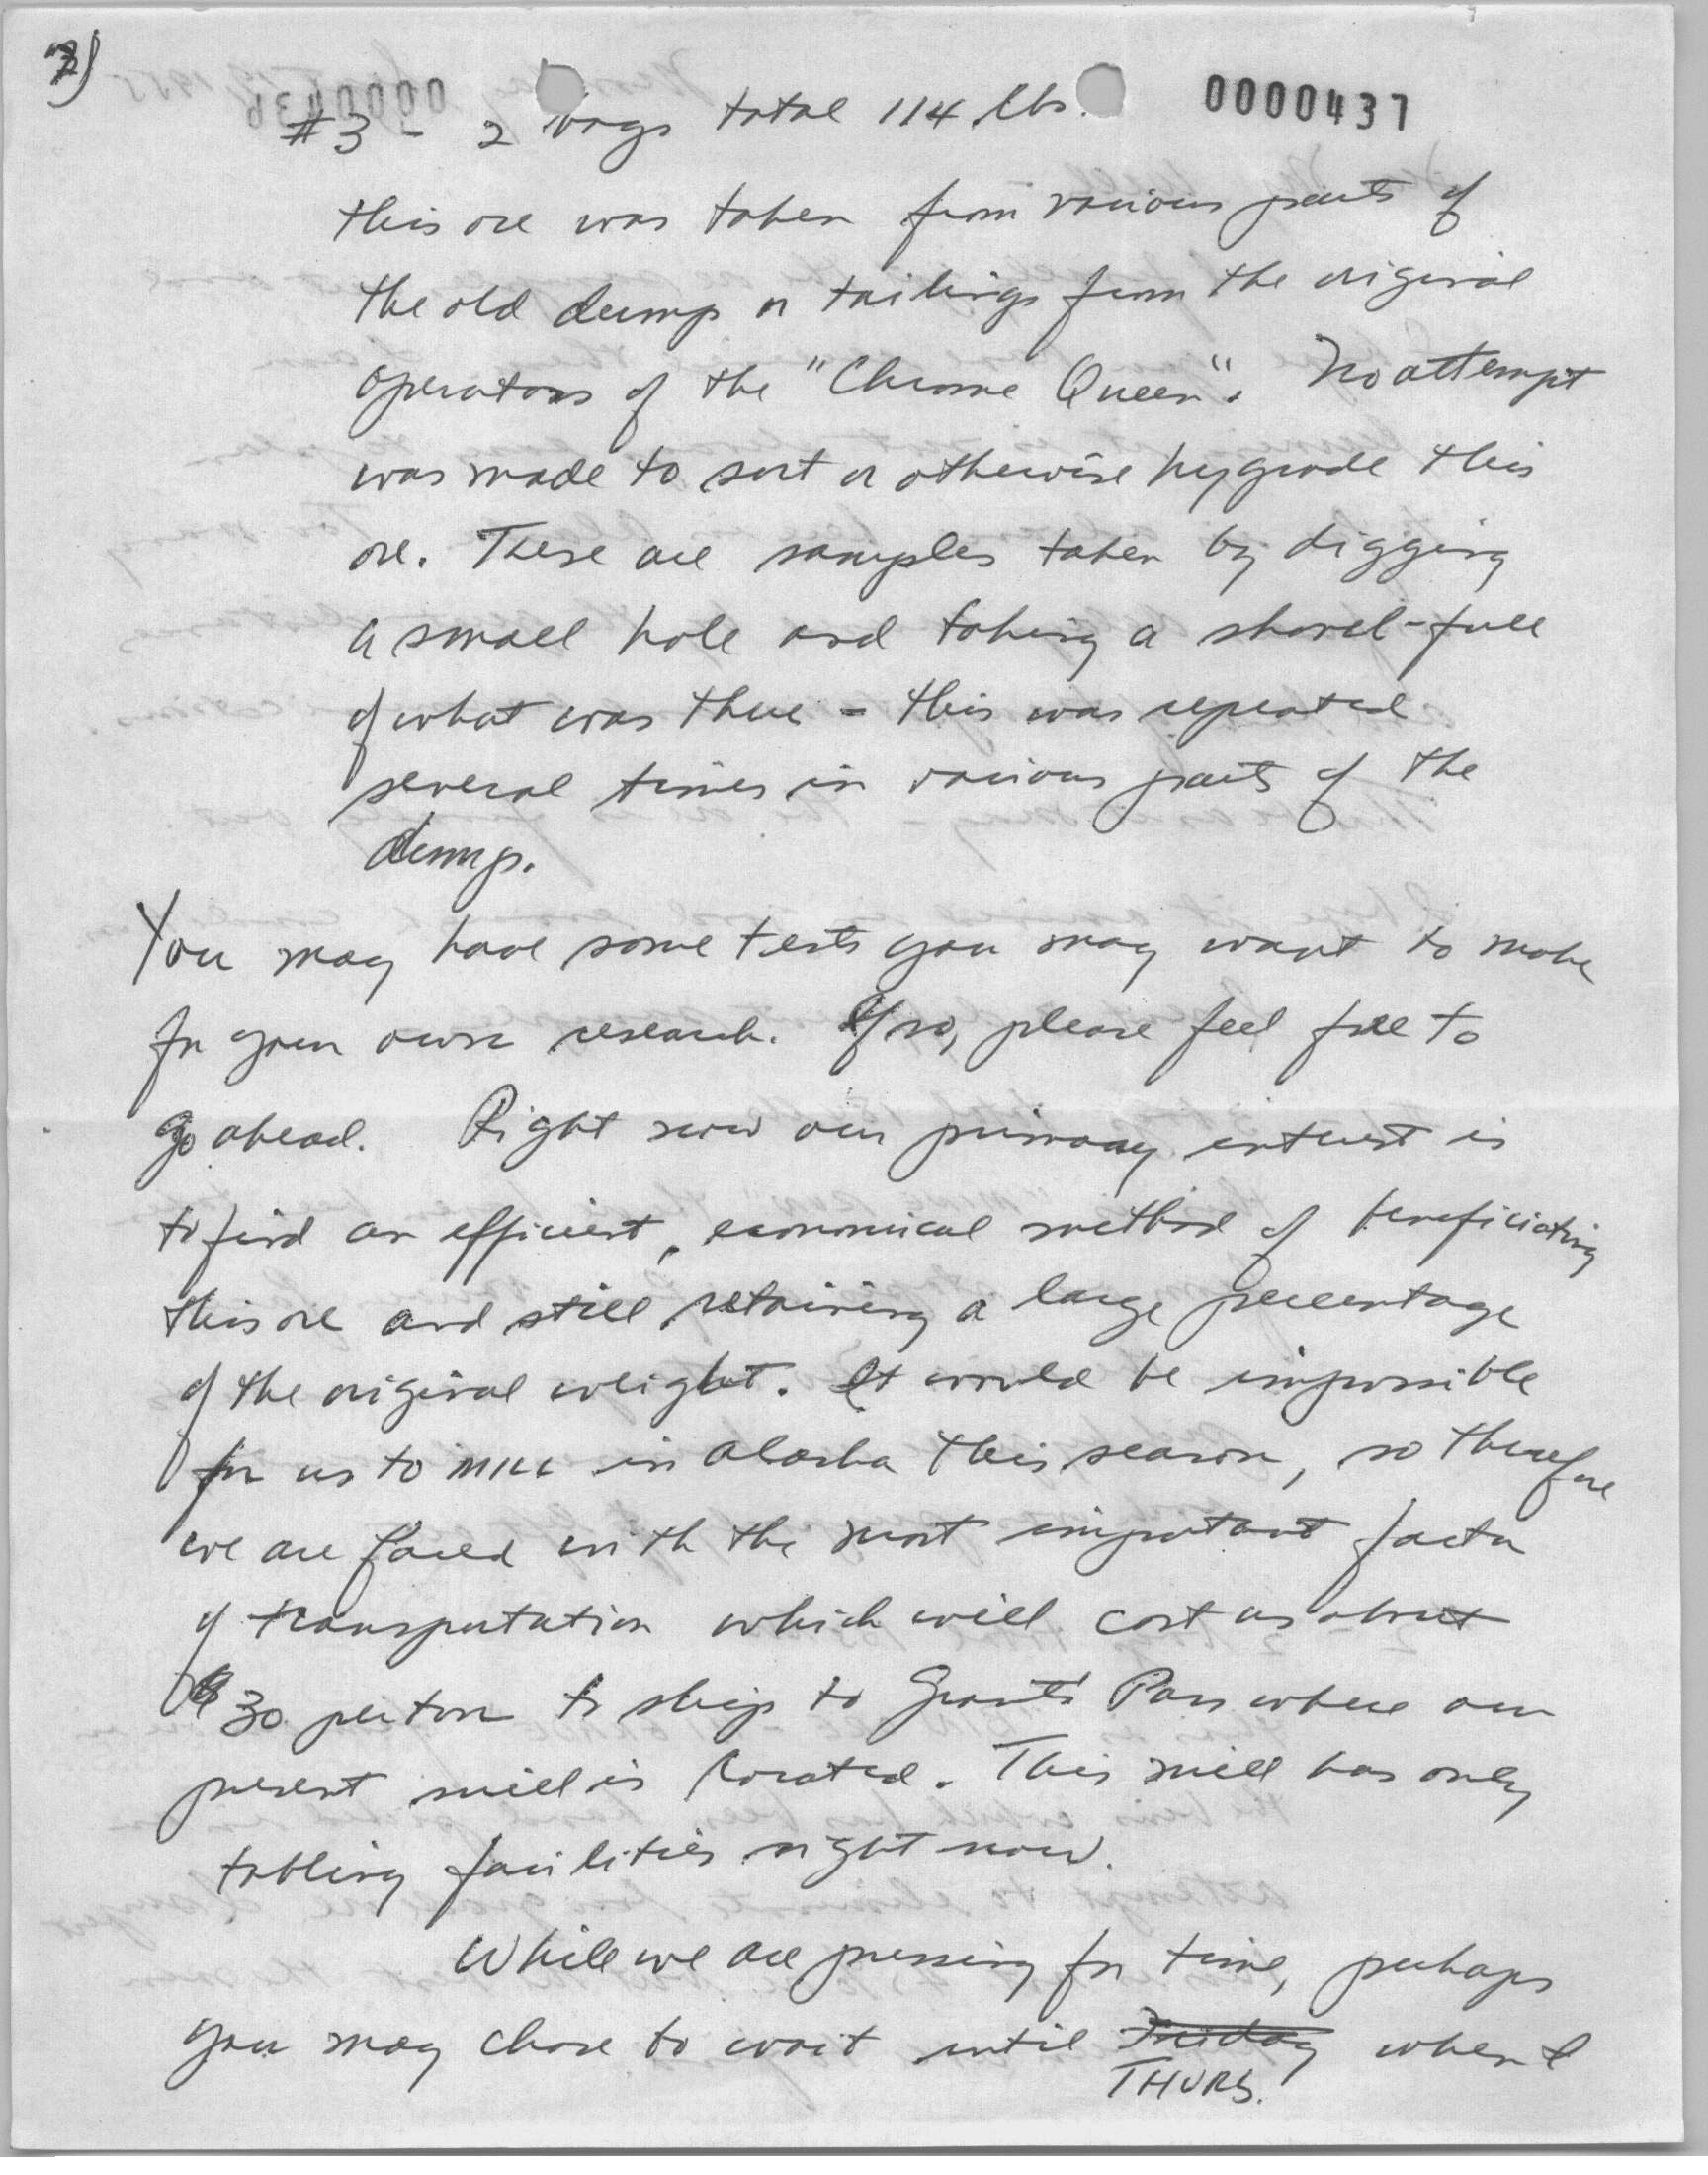 2)
0000437
#3 - 2 bags total 114 lbs.
this ore was taken from various parts of
the old dump or tailings from the original
operators of the "Chrome Queen". No attempt
was made to sort or otherwise hygrade this
ore. These are samples taken by digging
a small hole and taking a shovel-full
of what was there - this was repeated
several times in various parts of the
dump.
You may have some tests you may want to make
for your own research. If so, please feel free to
go ahead. Right now our primary interest is
to find an efficient, economical method of beneficiating
this ore and still retaining a large percentage
of the original weight. It would be impossible
for us to mill in Alaska this season, so therefore
we are faced with the most important factor
of transportation which will cost us about
$30 per ton to ship to Grants Pass where our
present mill is located. This mill has only
tabling facilities right now.
While we are pressing for time, perhaps
you may chose to wait until Friday when I
THURS.